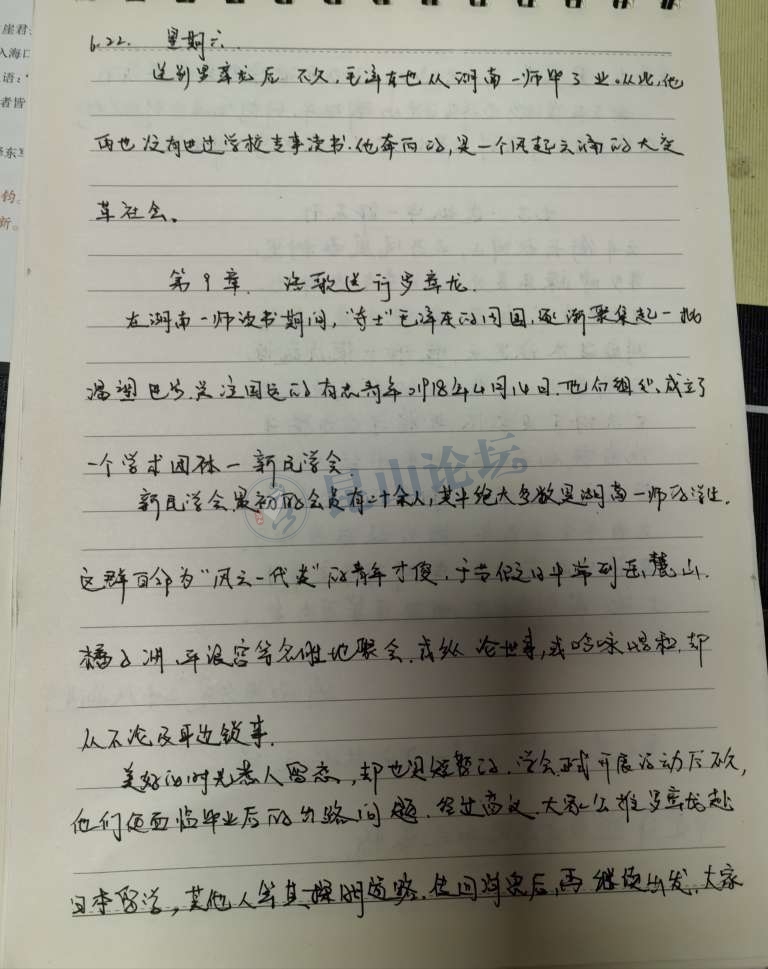 崖君
入海口
语:“
者皆
钧。
新。
6.22. 星期六.
送别罗章龙后不久,毛泽东也从湖南一师毕了业.从此,他
再也没有进过学校专事读书.他奔向的,是一个风起云涌的大变
革社会。
第9章. 浩歌送行罗章龙.
在湖南一师读书期间,“奇士”毛泽东的周围,逐渐聚集起一批
渴望进步.关注国运的有志青年.1918年4月14日.他们组织.成立了
一个学术团体—新民学会.
昆山论坛
新民学会最初的会员有二十余人,其中绝大多数是湖南一师的学生.
这群自命为“风云一代”的青年才俊,于节假之日中常到岳麓山.
橘子洲.平浪宫等名胜地聚会.或纵论世事,或吟咏唱和.却
从不论及身边锁事.
美好的时光惹人留恋,却也是短暂的.学会正式开展活动后不久,
他们便面临毕业后的出路问题.经过商议.大家公推罗章龙赴
日本留学,其他人等其探明道路.传回消息后,再继续出发.大家